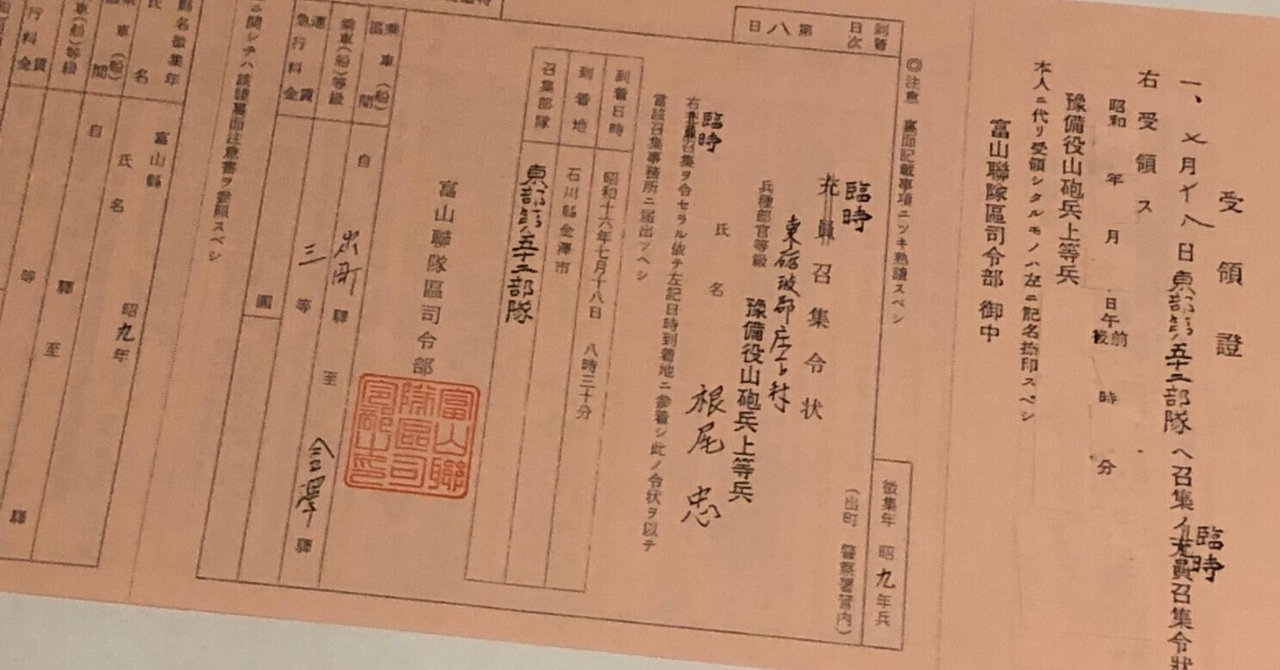 受領證
臨時
一、七月十八日東部第五十二部隊ヘ召集ノ充員召集令狀
右受領ス
昭和 年 月 日午前後 時 分
豫備役山砲兵上等兵
本人ニ代リ受領シタルモノハ左ニ記名捺印スベシ
富山聯隊區司令部 御中
◎注意 裏面記載事項ニツキ熟讀スベシ
到著日次
第八日
徵集年 昭九年兵
(出町 警察署管內)
臨時
充員召集令狀
東礪波郡庄下村
兵種部官等級 豫備役山砲兵上等兵
氏名 根尾 忠
臨時
右充員召集ヲ令セラル依テ左記日時到著地ニ參著シ此ノ令狀ヲ以テ
當該召集事務所ニ屆出ヅヘシ
到著日時 昭和十六年七月十八日 八時三十分
到著地 石川縣金澤市
召集部隊 東部第五十二部隊
富山聯隊區司令部
富山聯隊區司令部之印
乘車(船)區間 自 出町 驛 至 金澤 驛
乘車(船)等級 三等
運賃
急行料金 圓
ニ關シテハ該證裏面注意書ヲ參照スベシ
縣名徵集年 富山縣 昭九年
氏名 氏名
乘車(船)區間 自 驛 至 驛
車(船)等級 等
賃
行料金